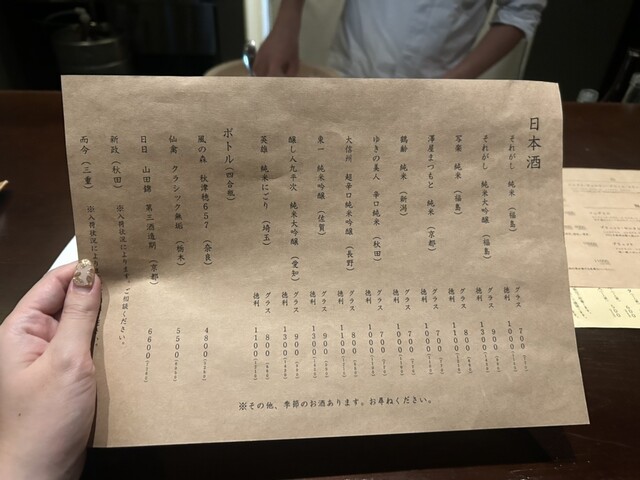 日本酒
それがし　純米　（福島）　グラス　700
徳利　1000
それがし　純米大吟醸　（福島）　グラス　900
徳利　1300
写楽　純米　（福島）　グラス　800
徳利　1100
澤屋まつもと　純米　（京都）　グラス　700
徳利　1000
鶴齢　純米　（新潟）　グラス　700
徳利　1000
ゆきの美人　辛口純米　（秋田）　グラス　700
徳利　1000
大信州　超辛口純米吟醸　（長野）　グラス　800
徳利　1100
東一　純米吟醸　（佐賀）　グラス　900
徳利　1300
醸し人九平次　純米大吟醸　（愛知）　グラス　900
徳利　1300
英雄　純米にごり　（埼玉）　グラス　800
徳利　1100
ボトル（四合瓶）
風の森　秋津穂657　（奈良）　4800
仙禽　クラシック無垢　（栃木）　5500
日日　山田錦　（京都）　6600
新政（秋田）　※入荷状況によります。ご相談ください。
而今（三重）　※入荷状況によ
※その他、季節のお酒あります。お尋ねください。